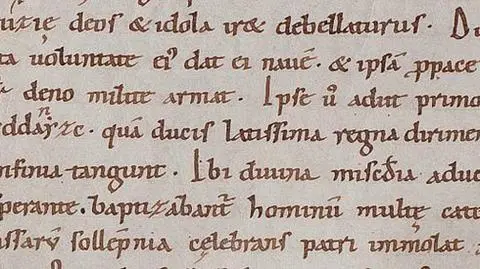 deos & idola irę debellaturus.
ta uoluntate ei⁹ dat ei nauē. & ipsā
deno milite armat. Ipse u̓ adiit primo
quā ducis latissima regna dirimen
nfinia tangunt. Ibi diuina miscd̓ia adue
perante. baptizabant̄ hominū multę cate
sollēpnia cęlebrans patri immolat